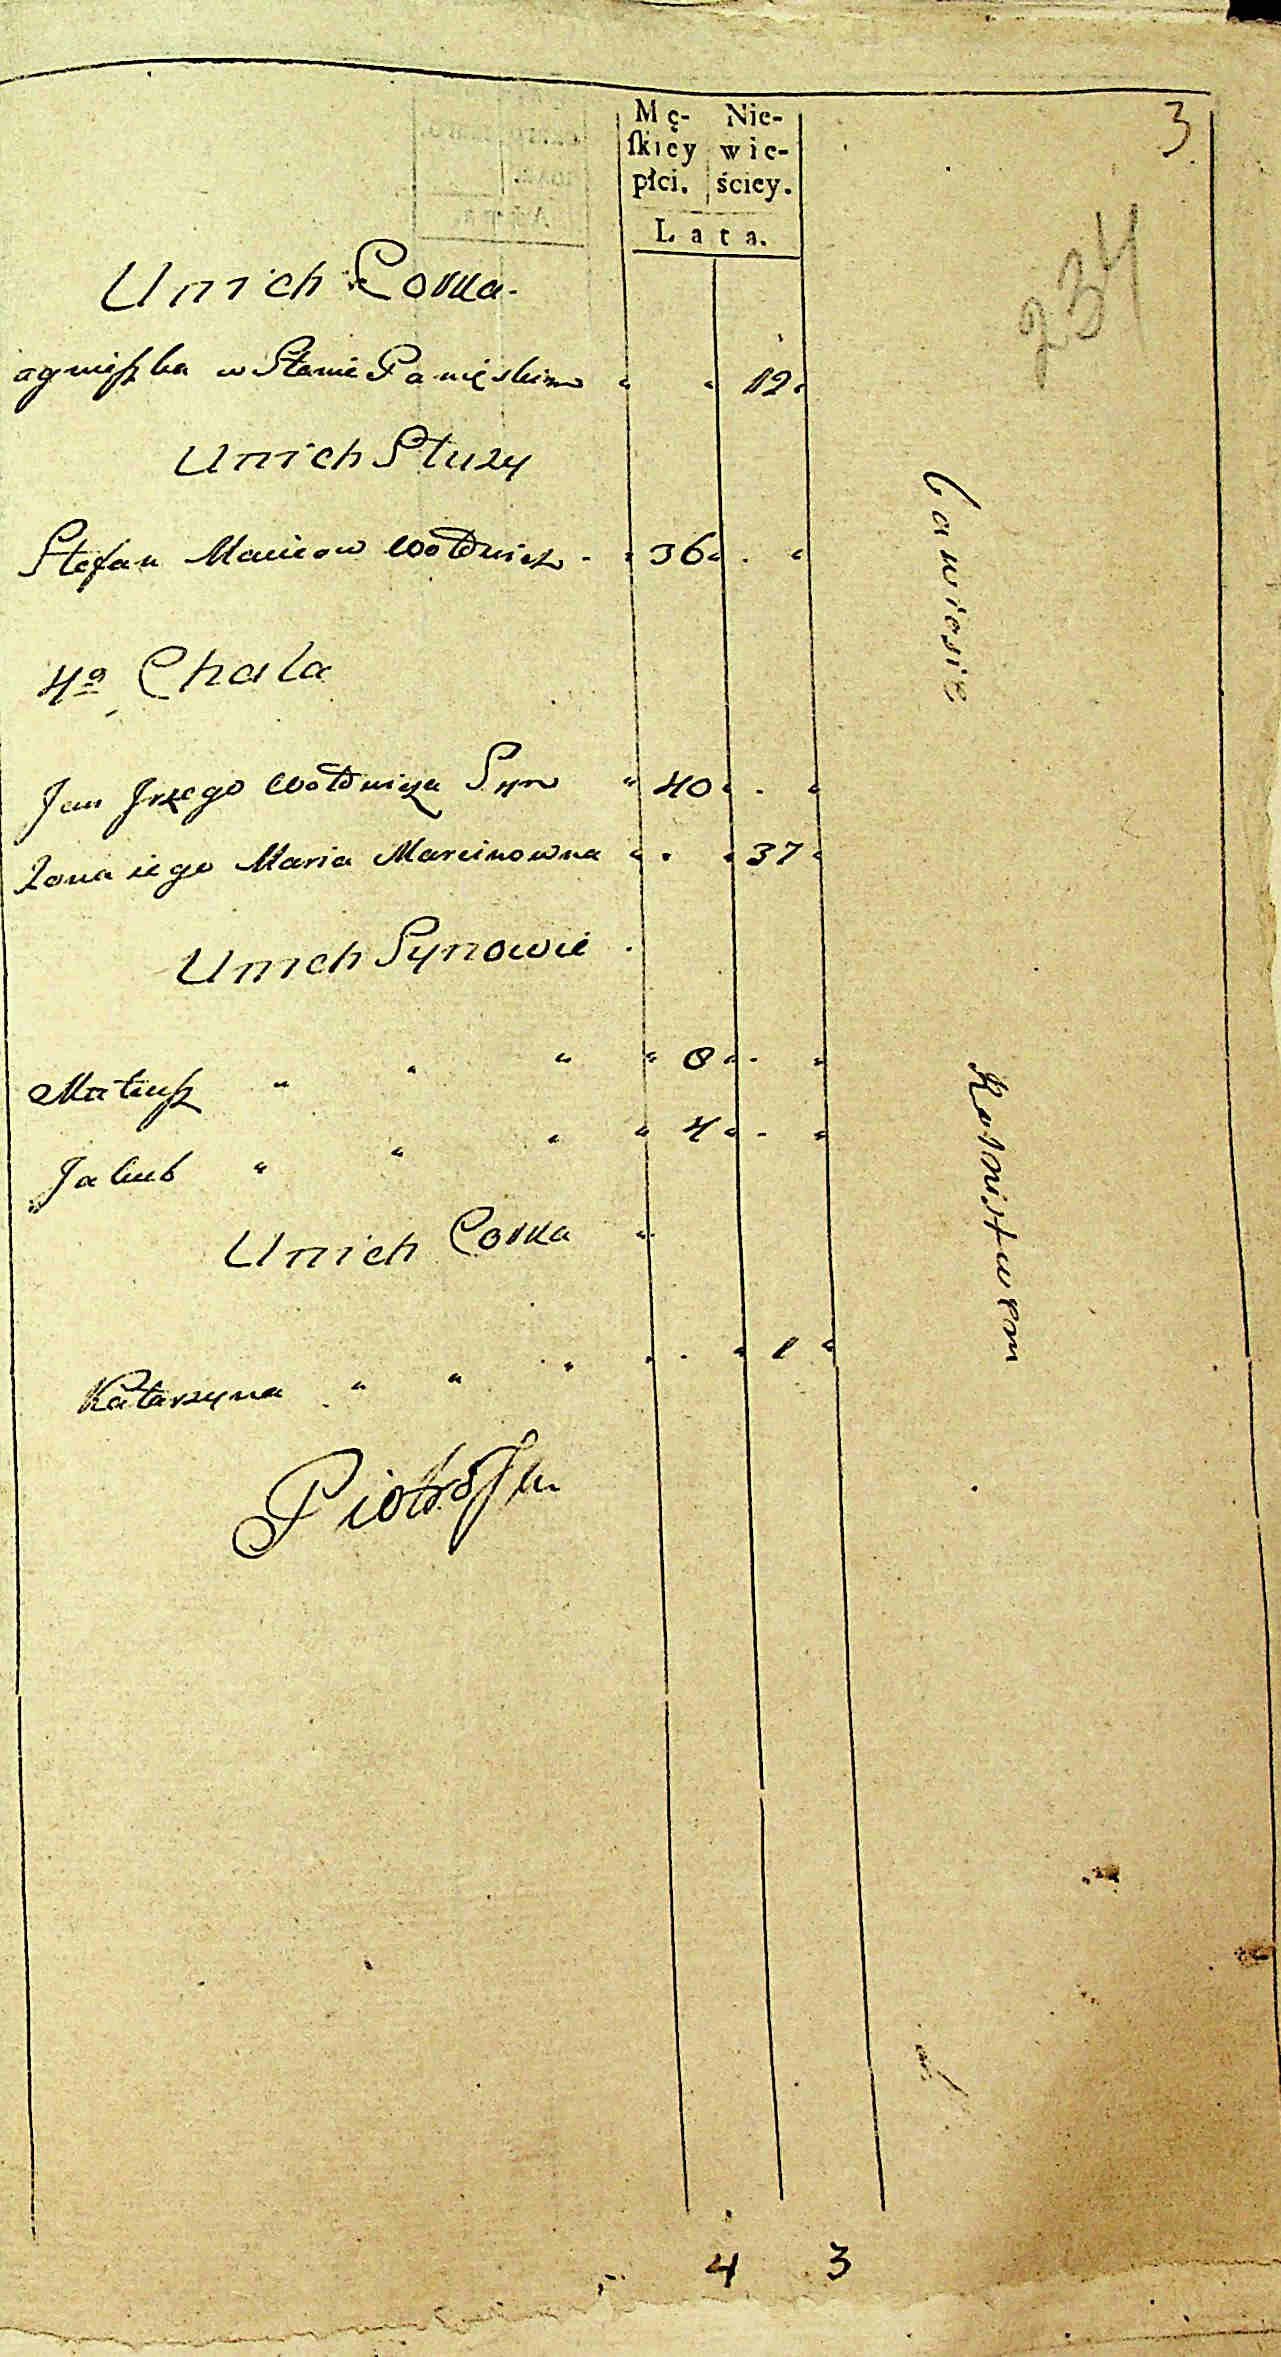 3
234
Mę- Nie-
ſkiey wie-
płci. ściey.
Lata.
Unich Corka
agnieszka w Stanie Panięskim 12
Unich Służy
Stefan Macieow Wołwicz 36
4o Chata
Jan Jrzego Syn 40
Zona iego Maria Marcinowna 37
Unich Synowie
Mateusz 8
Jakub 4
Unich Corka
Katarzyna 1
Rolnistwem
4 3